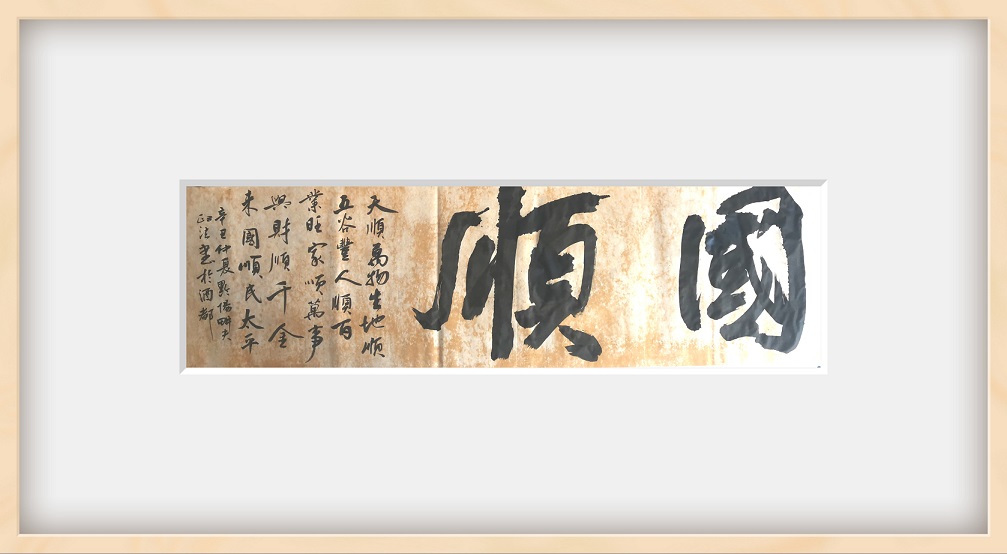 國順
天順萬物生地順
五谷豐人順百
業旺家順萬事
興財順千金
来國順民太平
辛巳仲夏黔畊夫
書於酒都